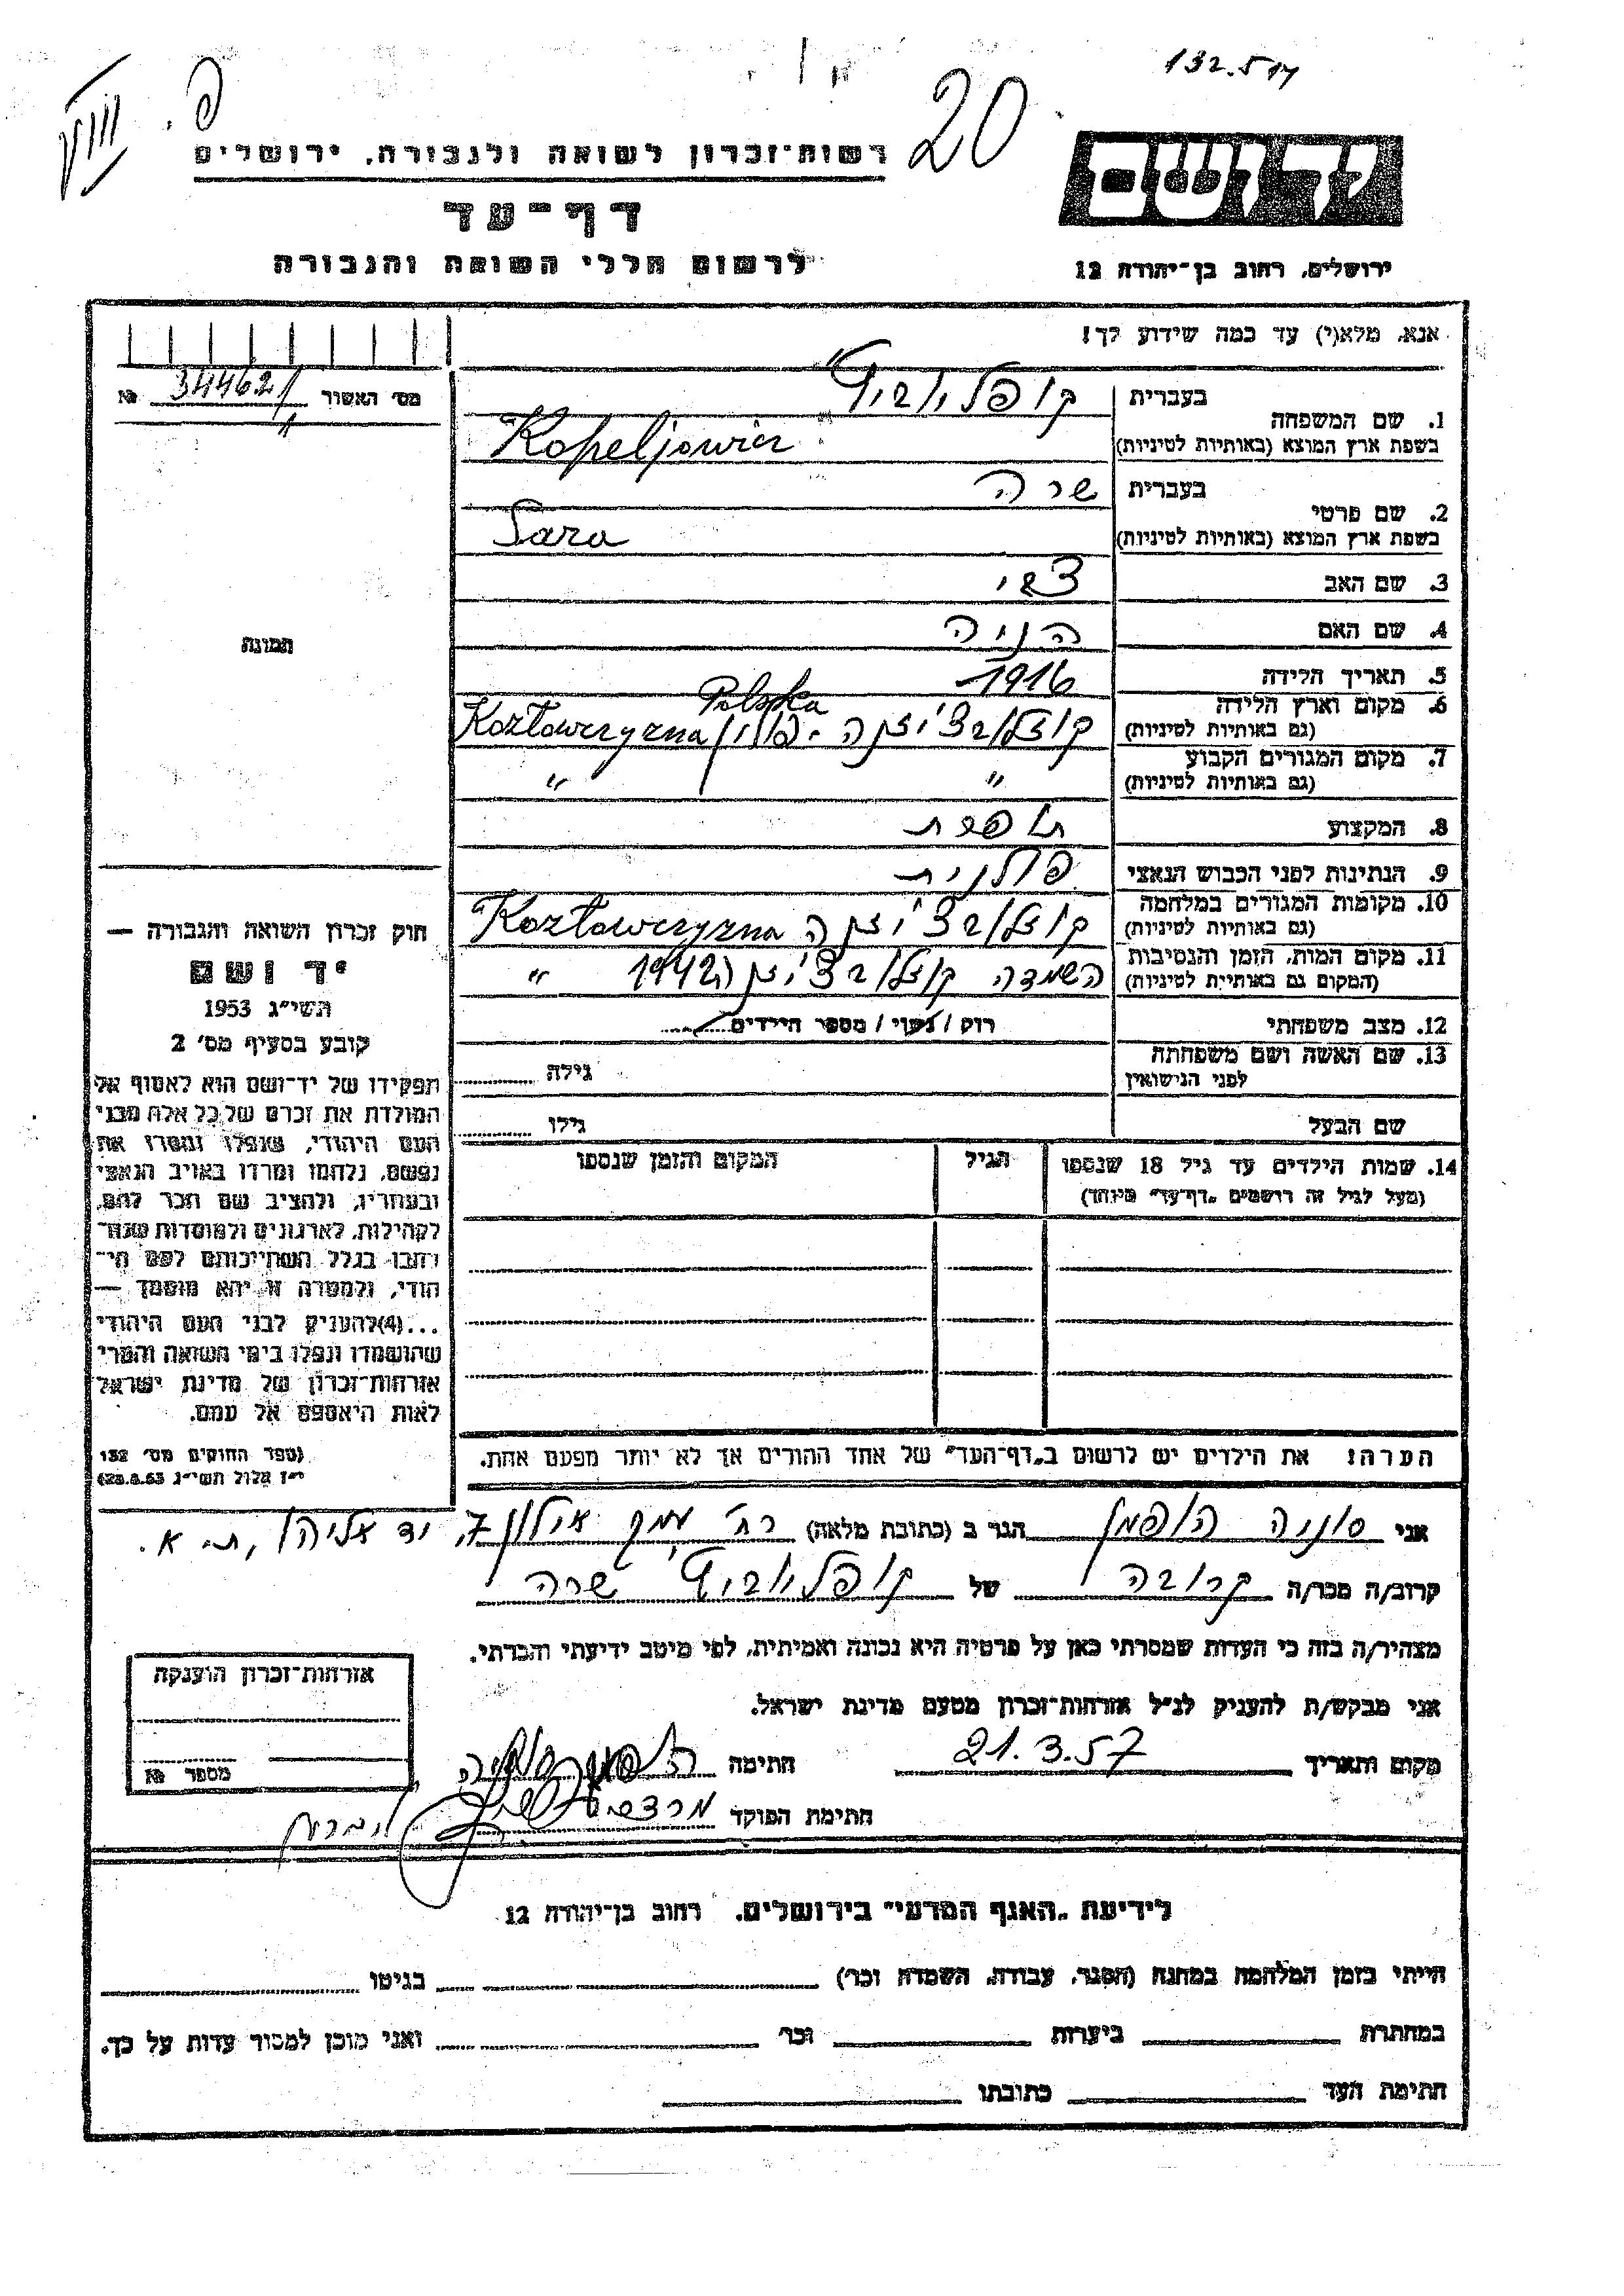 132.514
20
פ.
יד ושם
רשות־זכרון לשואה ולגבורה, ירושלים
דף־עד
לרשום חללי השואה והגבורה
ירושלים, רחוב בן־יהודה 12
אנא, מלא(י) עד כמה שידוע לך!
מס׳ האשור 344621 №
1. שם המשפחה
בעברית קופליוביץ
בשפת ארץ המוצא (באותיות לטיניות) Kopeljowicz
2. שם פרטי
בעברית שרה
בשפת ארץ המוצא (באותיות לטיניות) Sara
3. שם האב צבי
4. שם האם הניה
5. תאריך הלידה 1916
6. מקום וארץ הלידה
(גם באותיות לטיניות) קוזלובצ'יזנה - פולין / Kozłowczyzna Polska
7. מקום המגורים הקבוע
(גם באותיות לטיניות) " "
8. המקצוע תופרת
9. הנתינות לפני הכבוש הנאצי פולנית
10. מקומות המגורים במלחמה
(גם באותיות לטיניות) קוזלובצ'יזנה Kozłowczyzna
11. מקום המות, הזמן והנסיבות
(המקום גם באותיות לטיניות) השמדה קוזלובצ'יזנה 1942 "
12. מצב משפחתי רוק / נשוי / מספר הילדים
13. שם האשה ושם משפחתה
לפני הנישואין גילה
שם הבעל גילו
14. שמות הילדים עד גיל 18 שנספו הגיל המקום והזמן שנספו
(מעל לגיל זה רושמים „דף־עד" מיוחד)
הערה: את הילדים יש לרשום ב„דף־העד" של אחד ההורים אך לא יותר מפעם אחת.
תמונה
חוק זכרון השואה והגבורה —
יד ושם
תשי"ג 1953
קובע בסעיף מס׳ 2
תפקידו של יד־ושם הוא לאסוף אל
המולדת את זכרם של כל אלה מבני
העם היהודי, שנפלו ומסרו את
נפשם, נלחמו ומרדו באויב הנאצי
ובעוזריו, ולהציב שם וזכר להם,
לקהילות, לארגונים ולמוסדות שנח־
רבו בגלל השתייכותם לעם הי־
הודי, ולמטרה זו יהא מוסמך —
...(4) להעניק לבני העם היהודי
שהושמדו ונפלו בימי השואה והמרי
אזרחות־זכרון של מדינת ישראל
לאות היאספם אל עמם.
(ספר החוקים מס׳ 132
י"ז אלול תשי"ג 28.8.53)
אני סוניה הופמן הגר ב (כתובת מלאה) רח' עמק אילון 7, יד אליהו, ת. א.
קרוב/ה מכר/ה קרובה של קופליוביץ שרה
מצהיר/ה בזה כי העדות שמסרתי כאן על פרטיה היא נכונה ואמיתית, לפי מיטב ידיעתי והכרתי.
אני מבקש/ת להעניק לנ"ל אזרחות־זכרון מטעם מדינת ישראל.
מקום ותאריך 21.3.57 חתימה הופמן סוניה
חתימת הפוקד
אזרחות־זכרון הוענקה
מספר №
לידיעת „האגף המדעי" בירושלים, רחוב בן־יהודה 12
הייתי בזמן המלחמה במחנה (הסגר, עבודה, השמדה וכו׳) בגיטו
במחתרת ביערות וכו׳ ואני מוכן למסור עדות על כך.
חתימת העד כתובתו